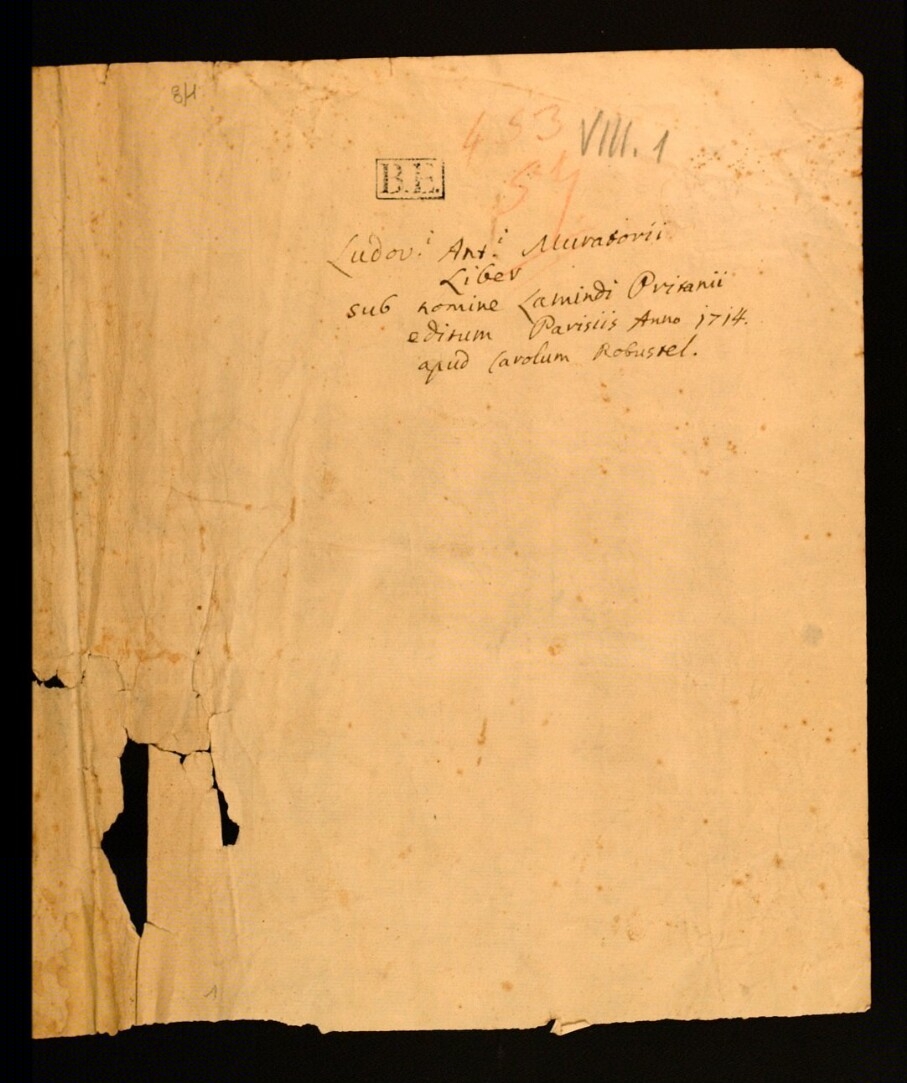 841
453 VIII. 1
B.E.
54
Ludov.i Ant.i Muratorii
Liber
sub nomine Lamindi Pritanii
editum Parisiis Anno 1714.
apud Carolum Robustel.
1